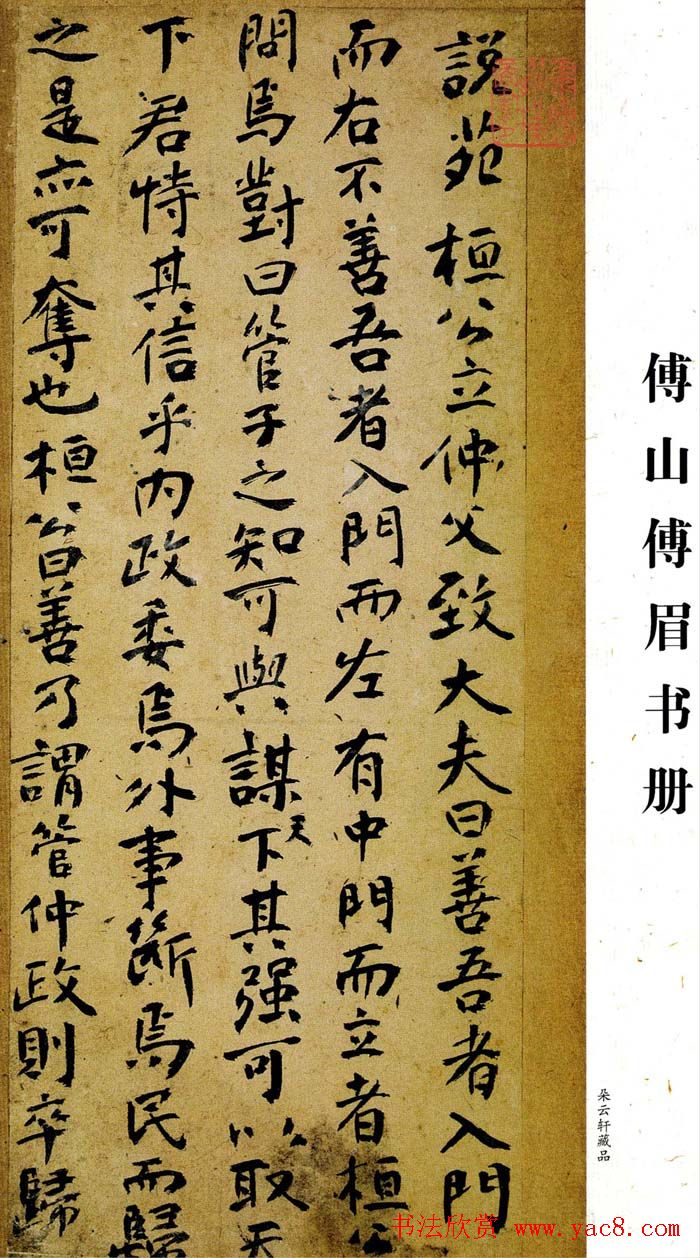 傅山傅眉书册
朵云轩藏品
說苑桓公立仲父致大夫曰善吾者入門
而右不善吾者入門而左有中門而立者桓公
問焉對曰管子之知可與謀天下其强可以取天
下君恃其信乎內政委焉外事斷焉民而歸
之是亦可奪也桓公曰善乃謂管仲政則卒歸
书法欣赏 www.yac8.com